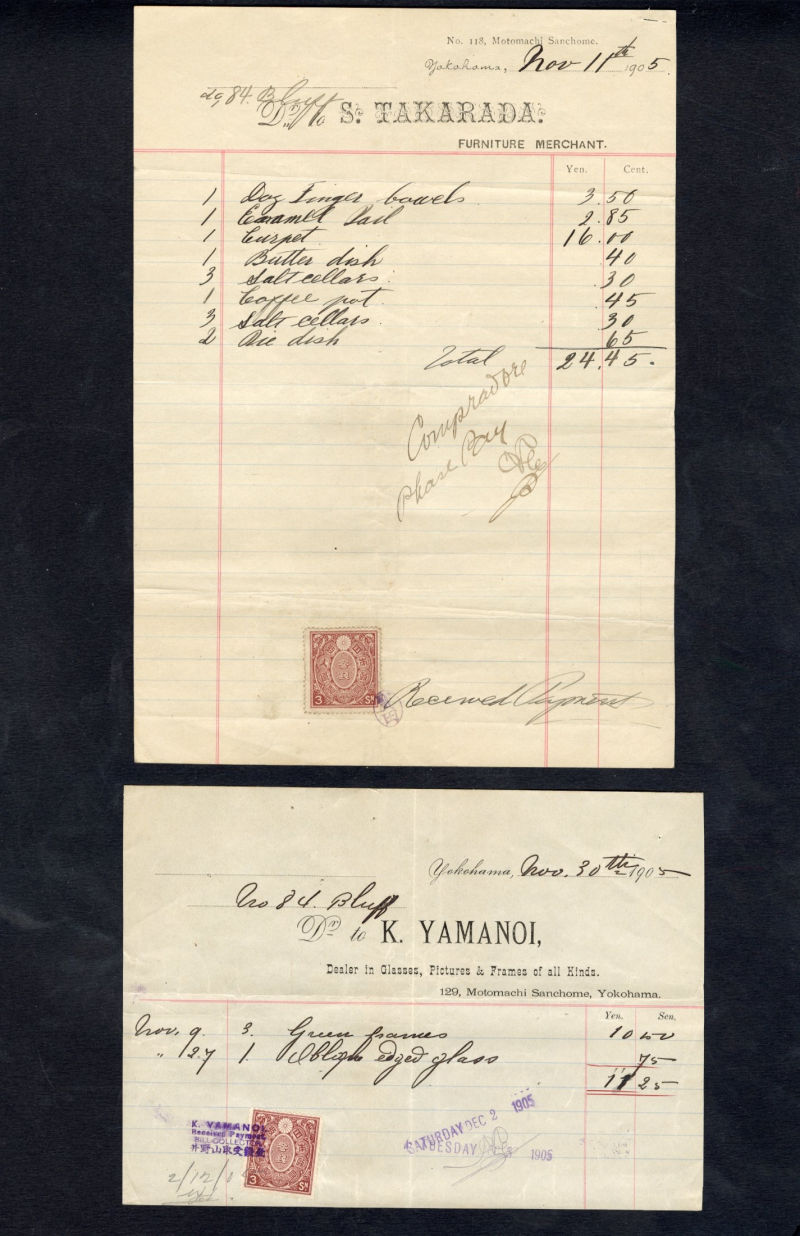 No. 118, Motomachi Sanchome.
Yokohama, Nov 11th 1905.
84. Bluff
Dr. to S. TAKARADA.
FURNITURE MERCHANT.
Yen. Cent.
1 Doz Finger bowels 3.50
1 Enamel Pail 2.85
1 Curpet 16.00
1 Butter dish .40
3 Salt cellars. .30
1 Coffee pot. .45
3 Salt cellars. .30
2 Pie dish .65
Total 24.45.
Compradore
Phase Pay
3 SN
Received Payment
Yokohama, Nov. 30th 1905
No 84. Bluff
Dr. to K. YAMANOI,
Dealer in Glasses, Pictures & Frames of all Kinds.
129, Motomachi Sanchome, Yokohama.
Yen. Sen.
Nov. 9. 3. Green frames 10 50
" 27 1. edged glass 75
11 25
K. YAMANOI
Received Payment
BILL COLLECTER
井野山取受錢金
3 SN
SATURDAY DEC 2 1905
TUESDAY 1905
2/12/0